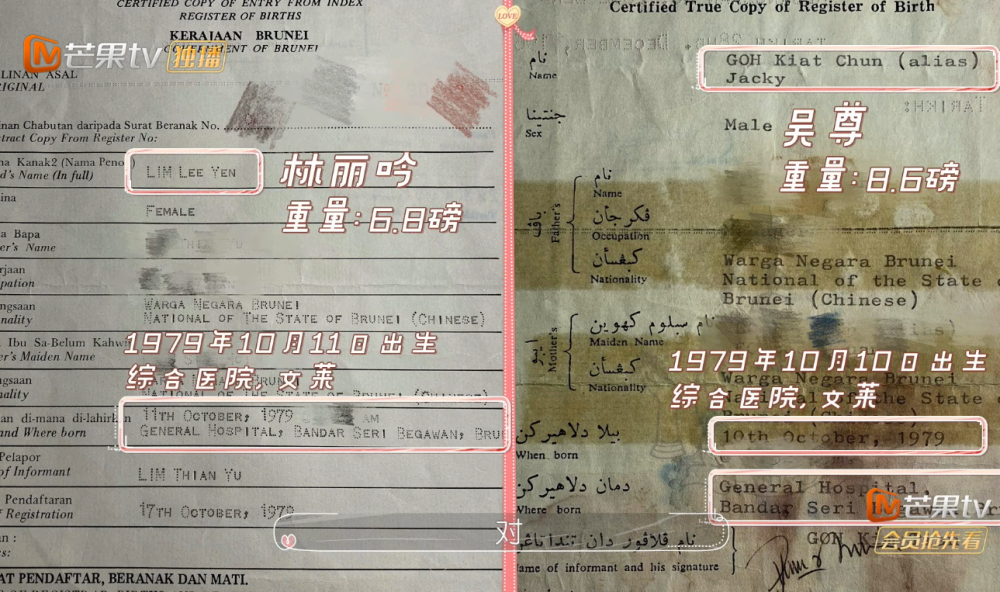 CERTIFIED COPY OF ENTRY FROM INDEX
REGISTER OF BIRTHS
KERAJAAN BRUNEI
GOVERNMENT OF BRUNEI
芒果tv 独播
LINAN ASAL
RIGINAL
inan Chabutan daripada Surat Beranak No.
tract Copy From Register No:
na Kanak2 (Nama Peno
d's Name (In full)
LIM LEE YEN
林丽吟
重量:6.8磅
ina
FEMALE
a Bapa
er's Name
rjaan
pation
ngsaan
nality
WARGA NEGARA BRUNEI
NATIONAL OF THE STATE OF BRUNEI (CHINESE)
Ibu Sa-Belum Kahwi
er's Maiden Name
1979年10月11日出生
综合医院,文莱
ngsaan
nality
WARGA NEGARA BRUNEI
NATIONAL OF THE STATE OF BRUNEI (CHINESE)
an di-mana di-lahirkan
and Where born
11TH OCTOBER, 1979
AM
GENERAL HOSPITAL, BANDAR SERI BEGAWAN, BRUN
Pelapor
of Informant
LIM THIAN YU
Pendaftaran
f Registration
17TH OCTOBER, 1979
AT PENDAFTAR, BERANAK DAN MATI.
Certified True Copy of Register of Birth
نام
Name
GOH Kiat Chun (alias)
Jacky
جنتينا
Sex
Male
吴尊
重量:8.6磅
Father's
نام
Name
Occupation
كبڠسأن
Nationality
Warga Negara Brunei
National of the State of
Brunei (Chinese)
Mother's
Maiden Name
كبڠسأن
Nationality
1979年10月10日出生
综合医院,文莱
Warga Negara Brunei
National of the State o
بيلا دلاهيركن
When born
10th October, 1979
دمان دلاهيركن
Where born
General Hospital,
Bandar Seri Begawan
芒果tv
会员抢先看
对
ame of informant and his signature
GOH